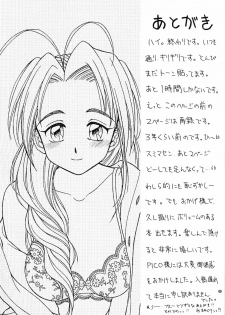 あとがき
ハイ。終わりです。いつも
通り、ギリギリです。てんぴ
まだトーン貼ってます。
あと1時間しかないです。
えっと このページの前の
2ページは再録です。
3年くらい前のです。ひ〜
スミマセン。あと2ページ
どーしても足んなくって…
わし的にも恥ずかしー
です。でも、おかげ様で、
久し振りにボリュームのある
本 出せます。楽しんで頂け
ると非常に嬉しいです。
PICO様には大変御迷惑
をおかけしました。
て本当に申し訳ありません